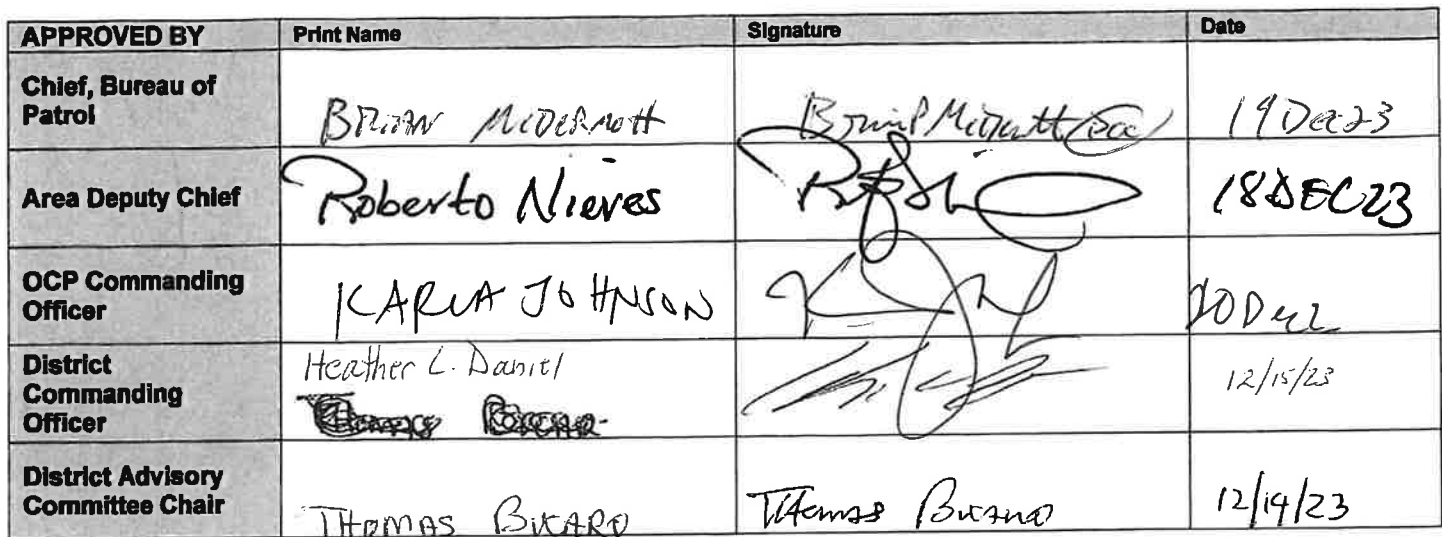 APPROVED BY Print Name Signature Date
Chief, Bureau of
Patrol
BRIAN McDERMOTT 19 Dec 23
Area Deputy Chief Roberto Nieves 18DEC23
OCP Commanding
Officer
KARLA JOHNSON
District
Commanding
Officer
Heather L. Daniel 12/15/23
District Advisory
Committee Chair
THOMAS BUCARO THOMAS BUCARO 12/14/23